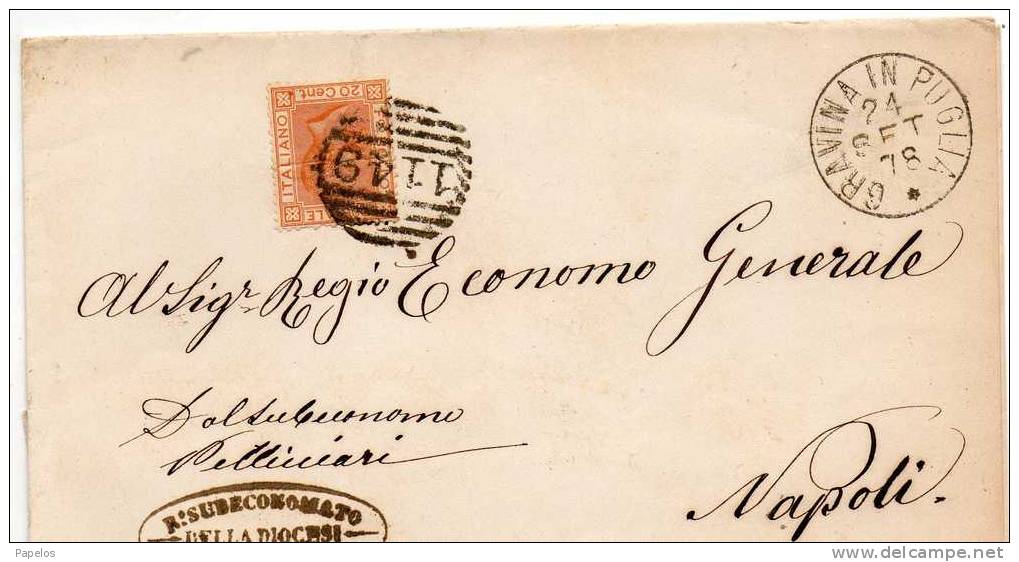 20 Cent.
ITALIANO
1149
GRAVINA IN PUGLIA
24
SET
78
Al Sigr. Regio Economo Generale
Dal Subeconomo
Pellicciari
Napoli.
R.o SUBECONOMATO
DELLA DIOCESI
Papelos
www.delcampe.net